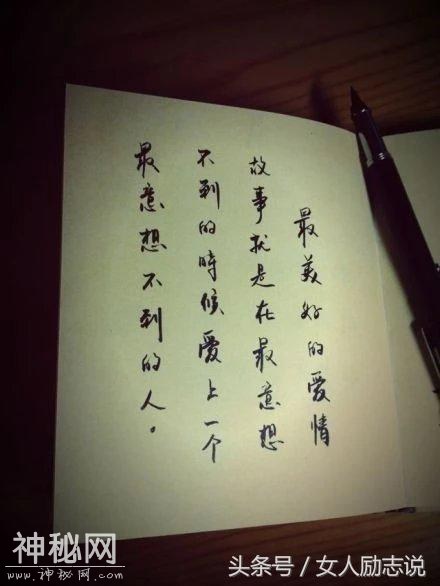 最美好的爱情
故事就是在最意想
不到的時候爱上一个
最意想不到的人。
神秘网
www.神秘网.com
头条号／女人励志说